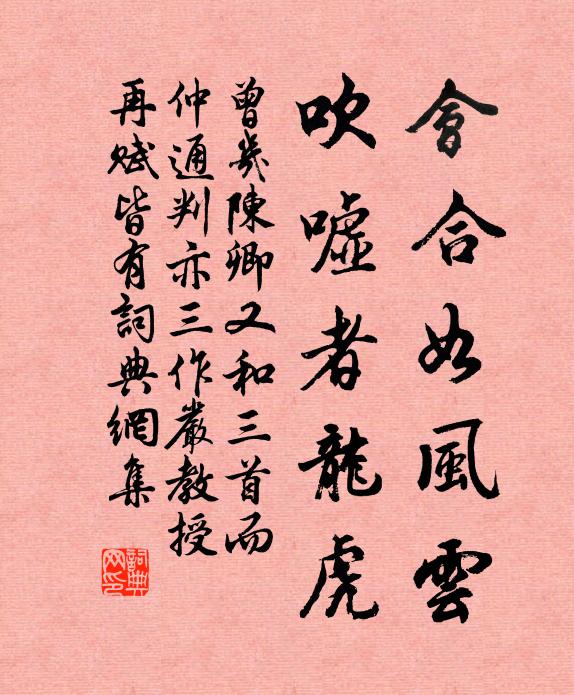 會合如風雲
吹噓者龍虎
曾幾陳卿又和三首而
仲通判亦三作嚴教授
再賦皆有詞典網集
詞典
网印